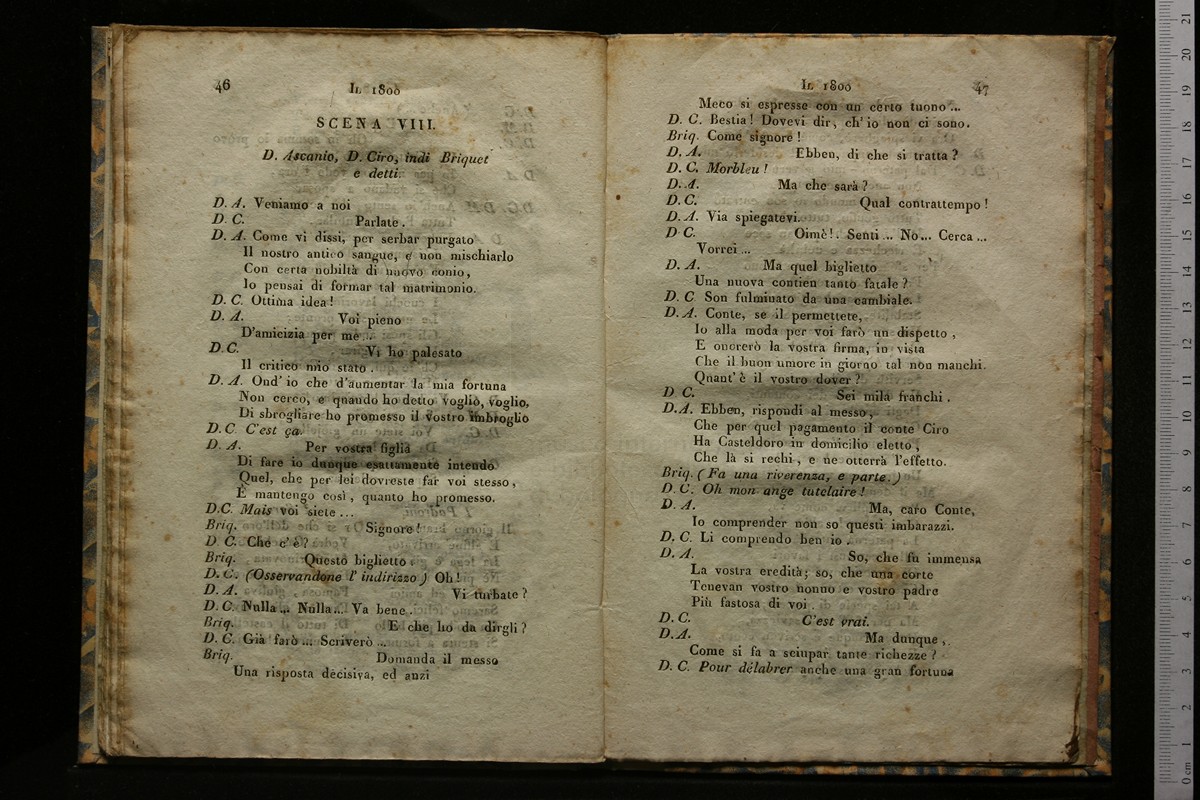 46
IL 1800
SCENA VIII.
D. Ascanio, D. Ciro, indi Briquet
e detti.
D. A. Veniamo a noi
D. C. Parlate.
D. A. Come vi dissi, per serbar purgato
Il nostro antico sangue, e non mischiarlo
Con certa nobiltà di nuovo conio,
Io pensai di formar tal matrimonio.
D. C. Ottima idea!
D. A. Voi pieno
D'amicizia per me ..
D.C. Vi ho palesato
Il critico mio stato.
D. A. Ond' io che d'aumentar la mia fortuna
Non cerco, e quando ho detto voglio, voglio,
Di sbrogliare ho promesso il vostro imbroglio
D. C. C'est ça.
D. A. Per vostra figlia
Di fare io dunque esattamente intendo
Quel, che per lei dovreste far voi stesso,
E mantengo così, quanto ho promesso.
D.C. Mais voi siete ...
Briq. Signore!
D. C. Che c'è?
Briq. Questo biglietto.
D. C. (Osservandone l' indirizzo) Oh!
D. A. Vi turbate?
D. C. Nulla... Nulla... Va bene.
Briq. E che ho da dirgli?
D. C. Già farò ... Scriverò ...
Briq. Domanda il messo
Una risposta decisiva, ed anzi
IL 1800
47
Meco si espresse con un certo tuono ...
D. C. Bestia! Dovevi dir, ch' io non ci sono.
Briq. Come signore!
D. A. Ebben, di che si tratta?
D. C. Morbleu!
D. A. Ma che sarà?
D. C. Qual contrattempo!
D. A. Via spiegatevi.
D C. Oimè!. Senti ... No ... Cerca ...
Vorrei ...
D. A. Ma quel biglietto
Una nuova contien tanto fatale?
D. C Son fulminato da una cambiale.
D. A. Conte, se il permettete,
Io alla moda per voi farò un dispetto,
E onorerò la vostra firma, in vista
Che il buon umore in giorno tal non manchi.
Quant' è il vostro dover?
D C. Sei mila franchi.
D.A. Ebben, rispondi al messo,
Che per quel pagamento il conte Ciro
Ha Casteldoro in domicilio eletto,
Che là si rechi, e ne otterrà l'effetto.
Briq. (Fa una riverenza, e parte.)
D. C. Oh mon ange tutelaire!
D. A. Ma, caro Conte,
Io comprender non so questi imbarazzi.
D. C. Li comprendo ben io.
D. A. So, che fu immensa
La vostra eredità; so, che una corte
Tenevan vostro nonno e vostro padre
Più fastosa di voi.
D. C. C'est vrai.
D.A. Ma dunque,
Come si fa a sciupar tante richezze?
D. C. Pour délabrer anche una gran fortuna